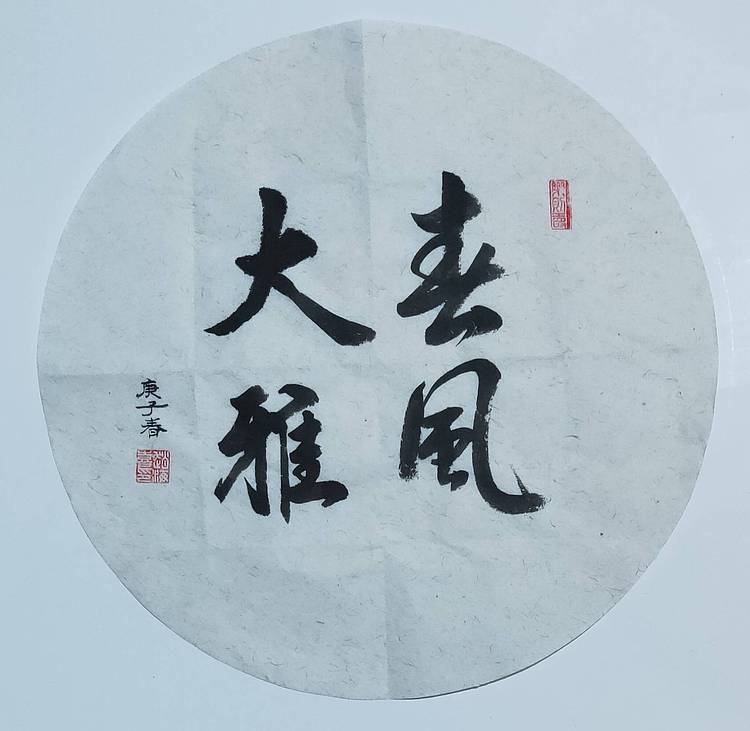 春風
大雅
庚子春